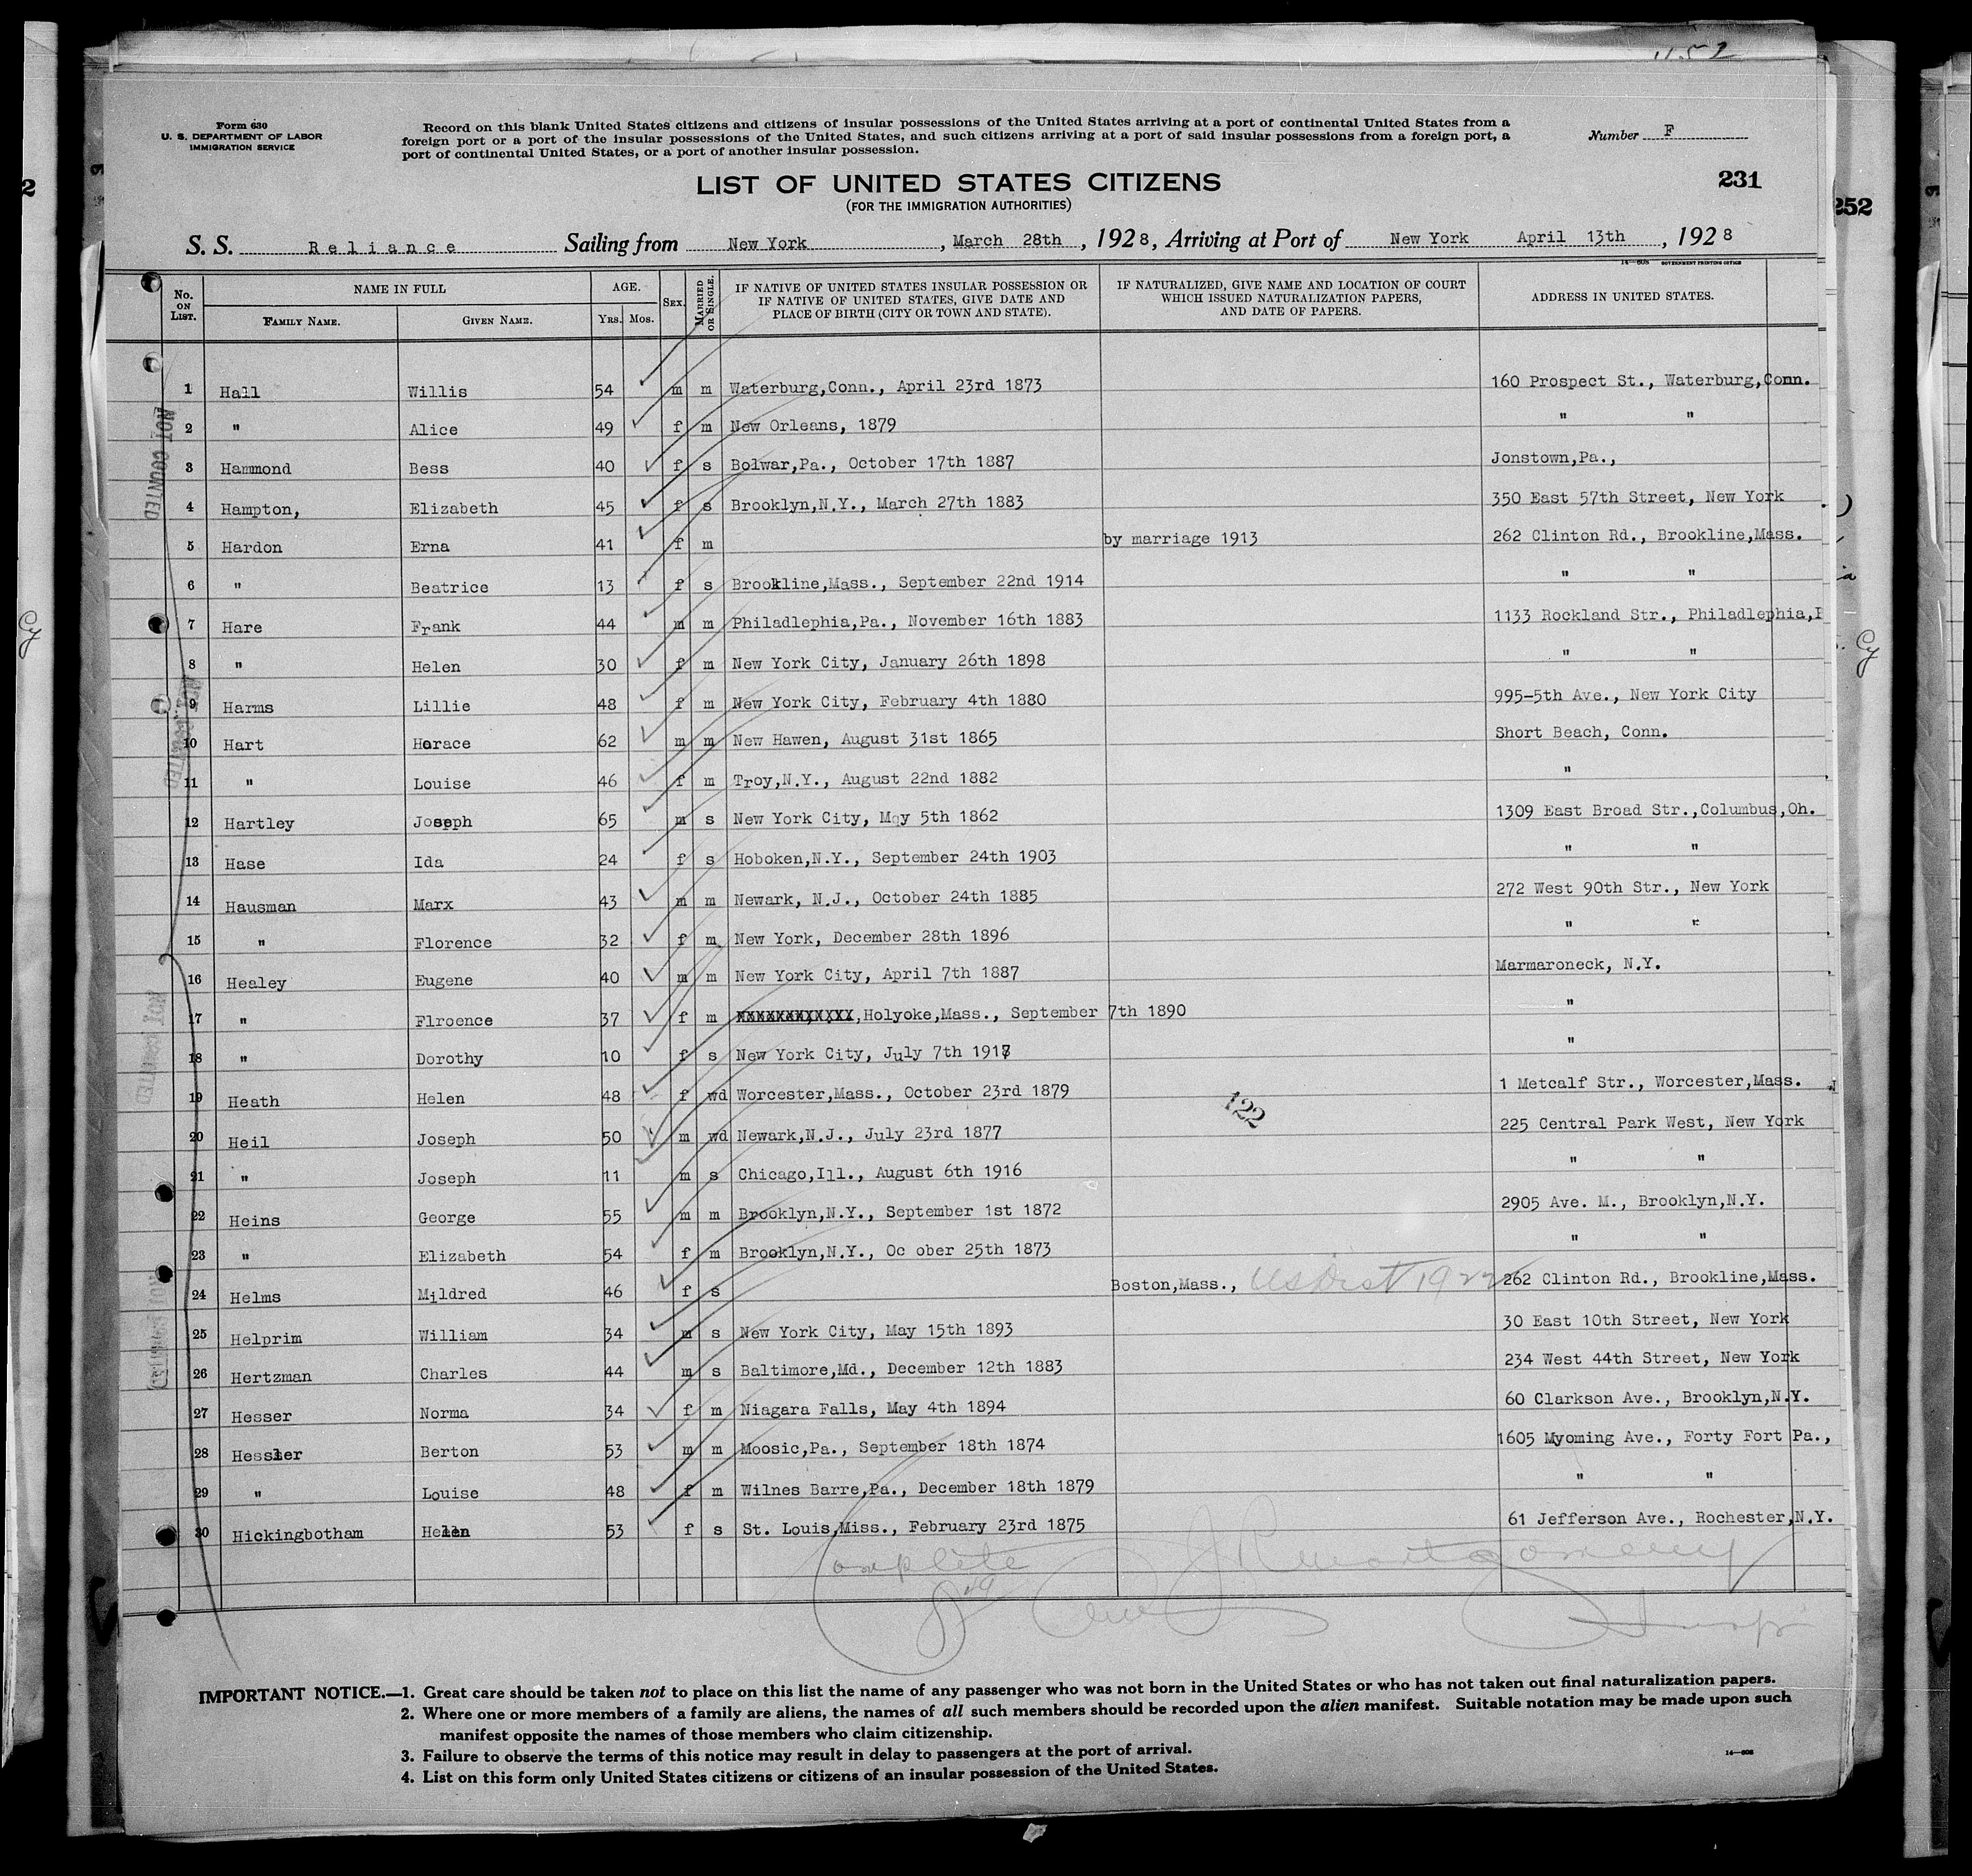 Form 630
U. S. DEPARTMENT OF LABOR
IMMIGRATION SERVICE
Record on this blank United States citizens and citizens of insular possessions of the United States arriving at a port of continental United States from a
foreign port or a port of the insular possessions of the United States, and such citizens arriving at a port of said insular possessions from a foreign port, a
port of continental United States, or a port of another insular possession.
Number F
LIST OF UNITED STATES CITIZENS
(FOR THE IMMIGRATION AUTHORITIES)
231
252
S. S. Reliance Sailing from New York, March 28th, 1928, Arriving at Port of New York April 13th, 1928
14—608 GOVERNMENT PRINTING OFFICE
No. ON LIST. NAME IN FULL FAMILY NAME. GIVEN NAME. AGE. Yrs. Mos. SEX. MARRIED OR SINGLE. IF NATIVE OF UNITED STATES INSULAR POSSESSION OR IF NATIVE OF UNITED STATES, GIVE DATE AND PLACE OF BIRTH (CITY OR TOWN AND STATE). IF NATURALIZED, GIVE NAME AND LOCATION OF COURT WHICH ISSUED NATURALIZATION PAPERS, AND DATE OF PAPERS. ADDRESS IN UNITED STATES.
1 Hall Willis 54 m m Waterburg,Conn., April 23rd 1873 160 Prospect St., Waterburg,Conn.
2 " Alice 49 f m New Orleans, 1879 " "
3 Hammond Bess 40 f s Bolwar,Pa., October 17th 1887 Jonstown,Pa.,
4 Hampton, Elizabeth 45 f s Brooklyn,N.Y., March 27th 1883 350 East 57th Street, New York
5 Hardon Erna 41 f m by marriage 1913 262 Clinton Rd., Brookline,Mass.
6 " Beatrice 13 f s Brookline,Mass., September 22nd 1914 " "
7 Hare Frank 44 m m Philadlephia,Pa., November 16th 1883 1133 Rockland Str., Philadlephia,P
8 " Helen 30 f m New York City, January 26th 1898 " "
9 Harms Lillie 48 f m New York City, February 4th 1880 995-5th Ave., New York City
10 Hart Horace 62 m m New Hawen, August 31st 1865 Short Beach, Conn.
11 " Louise 46 f m Troy,N.Y., August 22nd 1882 "
12 Hartley Joseph 65 m s New York City, May 5th 1862 1309 East Broad Str.,Columbus,Oh.
13 Hase Ida 24 f s Hoboken,N.Y., September 24th 1903 " "
14 Hausman Marx 43 m m Newark, N.J., October 24th 1885 272 West 90th Str., New York
15 " Florence 32 f m. New York, December 28th 1896 " "
16 Healey Eugene 40 m m New York City, April 7th 1887 Marmaroneck, N.Y.
17 " Flroence 37 f m XXXXXXXXXXXX,Holyoke,Mass., September 7th 1890 "
18 " Dorothy 10 f s New York City, July 7th 1917 "
19 Heath Helen 48 f wd Worcester,Mass., October 23rd 1879 1 Metcalf Str., Worcester,Mass.
122
20 Heil Joseph 50 m wd Newark,N.J., July 23rd 1877 225 Central Park West, New York
21 " Joseph 11 m s Chicago,Ill., August 6th 1916 " "
22 Heins George 55 m m Brooklyn,N.Y., September 1st 1872 2905 Ave. M., Brooklyn,N.Y.
23 " Elizabeth 54 f m Brooklyn,N.Y., Oc ober 25th 1873 " "
24 Helms Mildred 46 f s Boston,Mass., US Dist 1922 262 Clinton Rd., Brookline,Mass.
25 Helprim William 34 m s New York City, May 15th 1893 30 East 10th Street, New York
26 Hertzman Charles 44 m s Baltimore,Md., December 12th 1883 234 West 44th Street, New York
27 Hesser Norma 34 f m Niagara Falls, May 4th 1894 60 Clarkson Ave., Brooklyn,N.Y.
28 Hessler Berton 53 m m Moosic,Pa., September 18th 1874 1605 Myoming Ave., Forty Fort Pa.,
29 " Louise 48 f m Wilnes Barre,Pa., December 18th 1879 " "
30 Hickingbotham Helen 53 f s St. Louis,Miss., February 23rd 1875 61 Jefferson Ave., Rochester,N.Y.
NOT COUNTED
NOT COUNTED
NOT COUNTED
NOT COUNTED
Complete
J R Montgomery
Insp
IMPORTANT NOTICE.—1. Great care should be taken not to place on this list the name of any passenger who was not born in the United States or who has not taken out final naturalization papers.
2. Where one or more members of a family are aliens, the names of all such members should be recorded upon the alien manifest. Suitable notation may be made upon such
manifest opposite the names of those members who claim citizenship.
3. Failure to observe the terms of this notice may result in delay to passengers at the port of arrival.
4. List on this form only United States citizens or citizens of an insular possession of the United States.
14—608